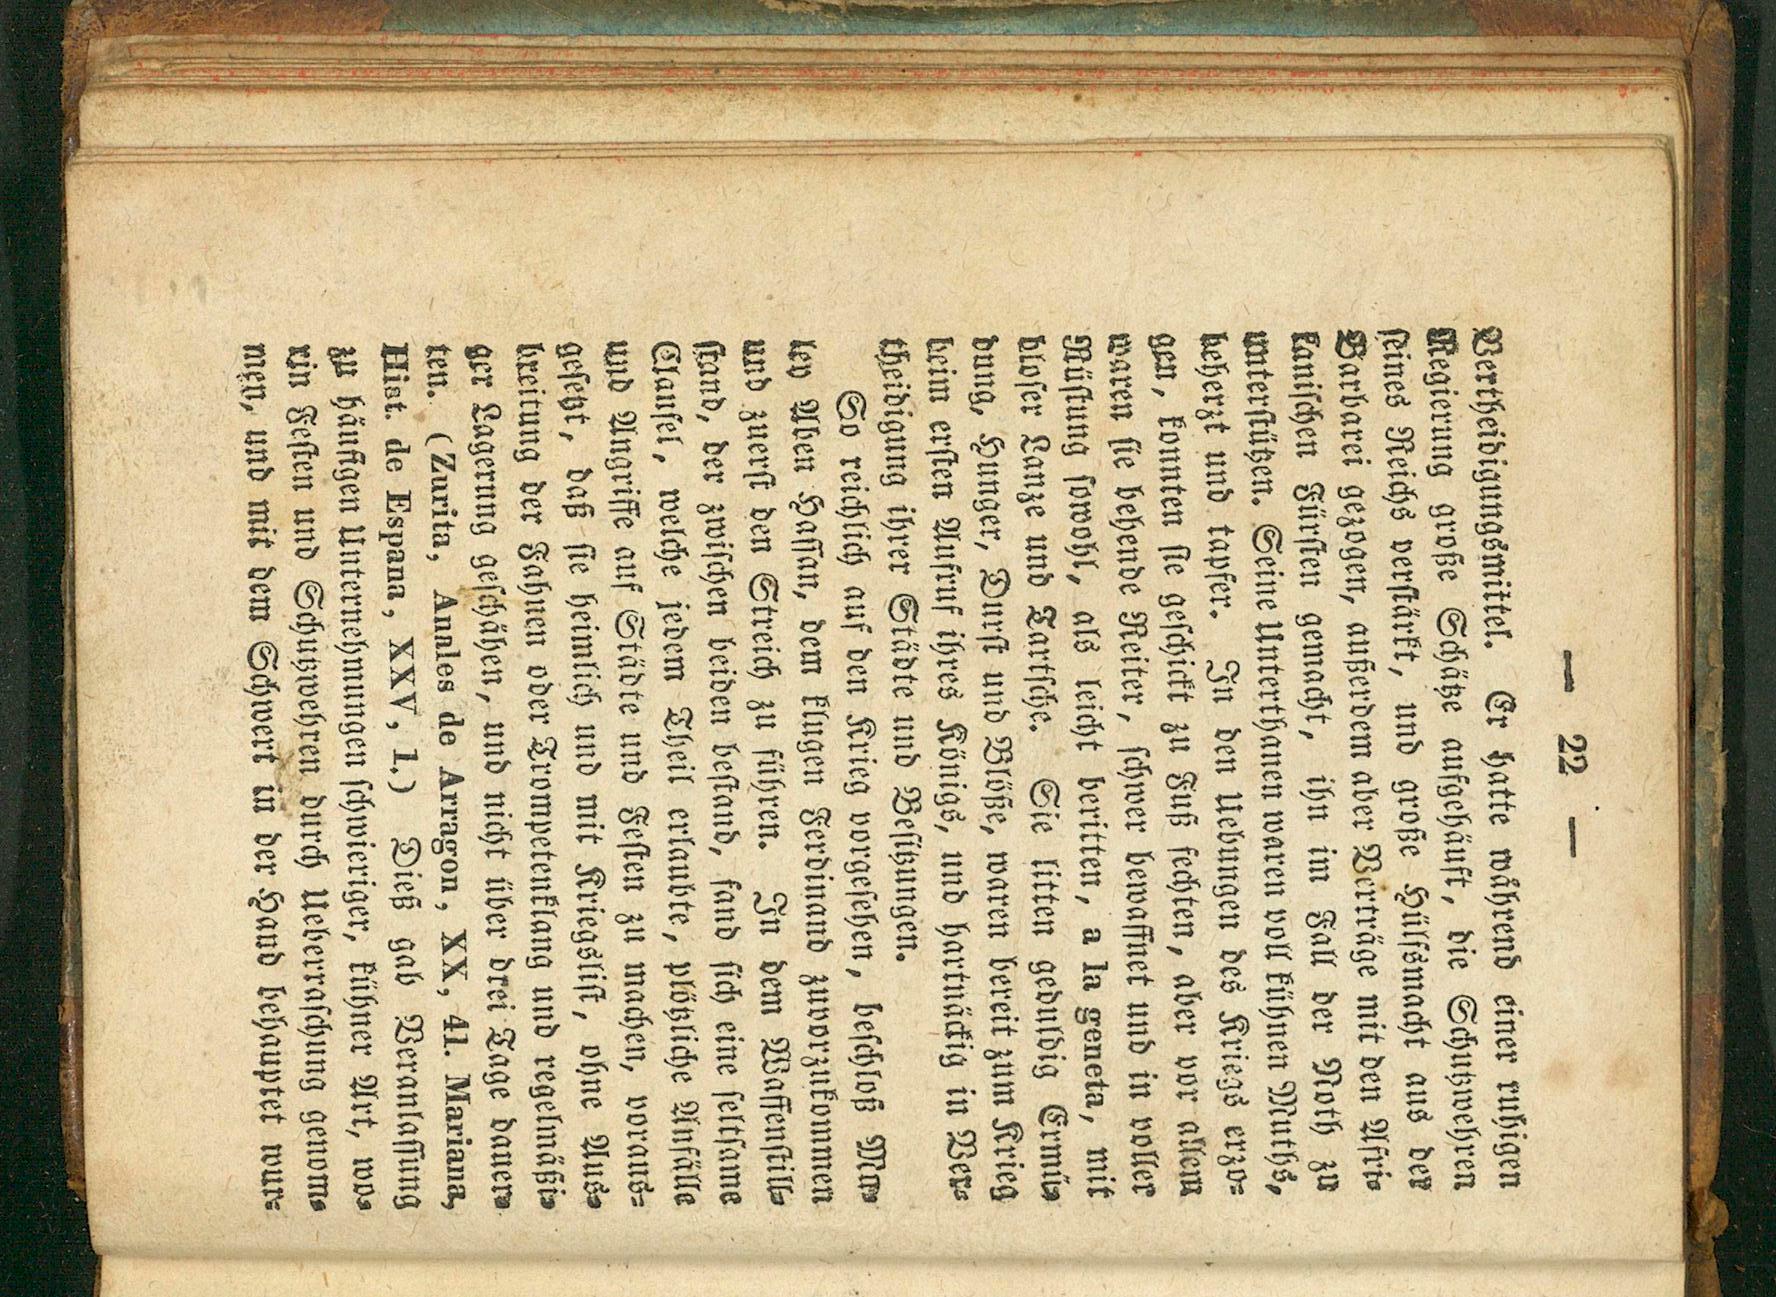 — 22 —
Vertheidigungsmittel. Er hatte während einer ruhigen
Regierung große Schätze aufgehäuft, die Schutzwehren
seines Reichs verstärkt, und große Hülfsmacht aus der
Barbarei gezogen, außerdem aber Verträge mit den Afri-
kanischen Fürsten gemacht, ihn im Fall der Noth zu
unterstützen. Seine Unterthanen waren voll kühnen Muths,
beherzt und tapfer. In den Uebungen des Kriegs erzo-
gen, konnten sie geschickt zu Fuß fechten, aber vor allem
waren sie behende Reiter, schwer bewaffnet und in voller
Rüstung sowohl, als leicht beritten, a la geneta, mit
bloser Lanze und Tartsche. Sie litten geduldig Ermü-
dung, Hunger, Durst und Blöße, waren bereit zum Krieg
beim ersten Aufruf ihres Königs, und hartnäckig in Ver-
theidigung ihrer Städte und Besitzungen.
So reichlich auf den Krieg vorgesehen, beschloß Mu-
ley Aben Hassan, dem klugen Ferdinand zuvorzukommen
und zuerst den Streich zu führen. In dem Waffenstill-
stand, der zwischen beiden bestand, fand sich eine seltsame
Clausel, welche jedem Theil erlaubte, plötzliche Anfälle
und Angriffe auf Städte und Festen zu machen, voraus-
gesetzt, daß sie heimlich und mit Kriegslist, ohne Aus-
breitung der Fahnen oder Trompetenklang und regelmäßi-
ger Lagerung geschähen, und nicht über drei Tage dauer-
ten. (Zurita, Anales de Arragon, XX, 41. Mariana,
Hist. de Espana, XXV, 1.) Dieß gab Veranlassung
zu häufigen Unternehmungen schwieriger, kühner Art, wo-
rin Festen und Schutzwehren durch Ueberraschung genom-
men, und mit dem Schwert in der Hand behauptet wur-